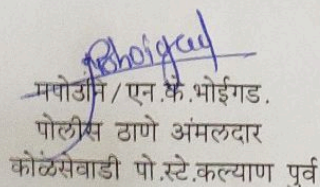 Bhoigad
मपोउनि/एन.के.भोईगड.
पोलीस ठाणे अंमलदार
कोळसेवाडी पो.स्टे.कल्याण पुर्व